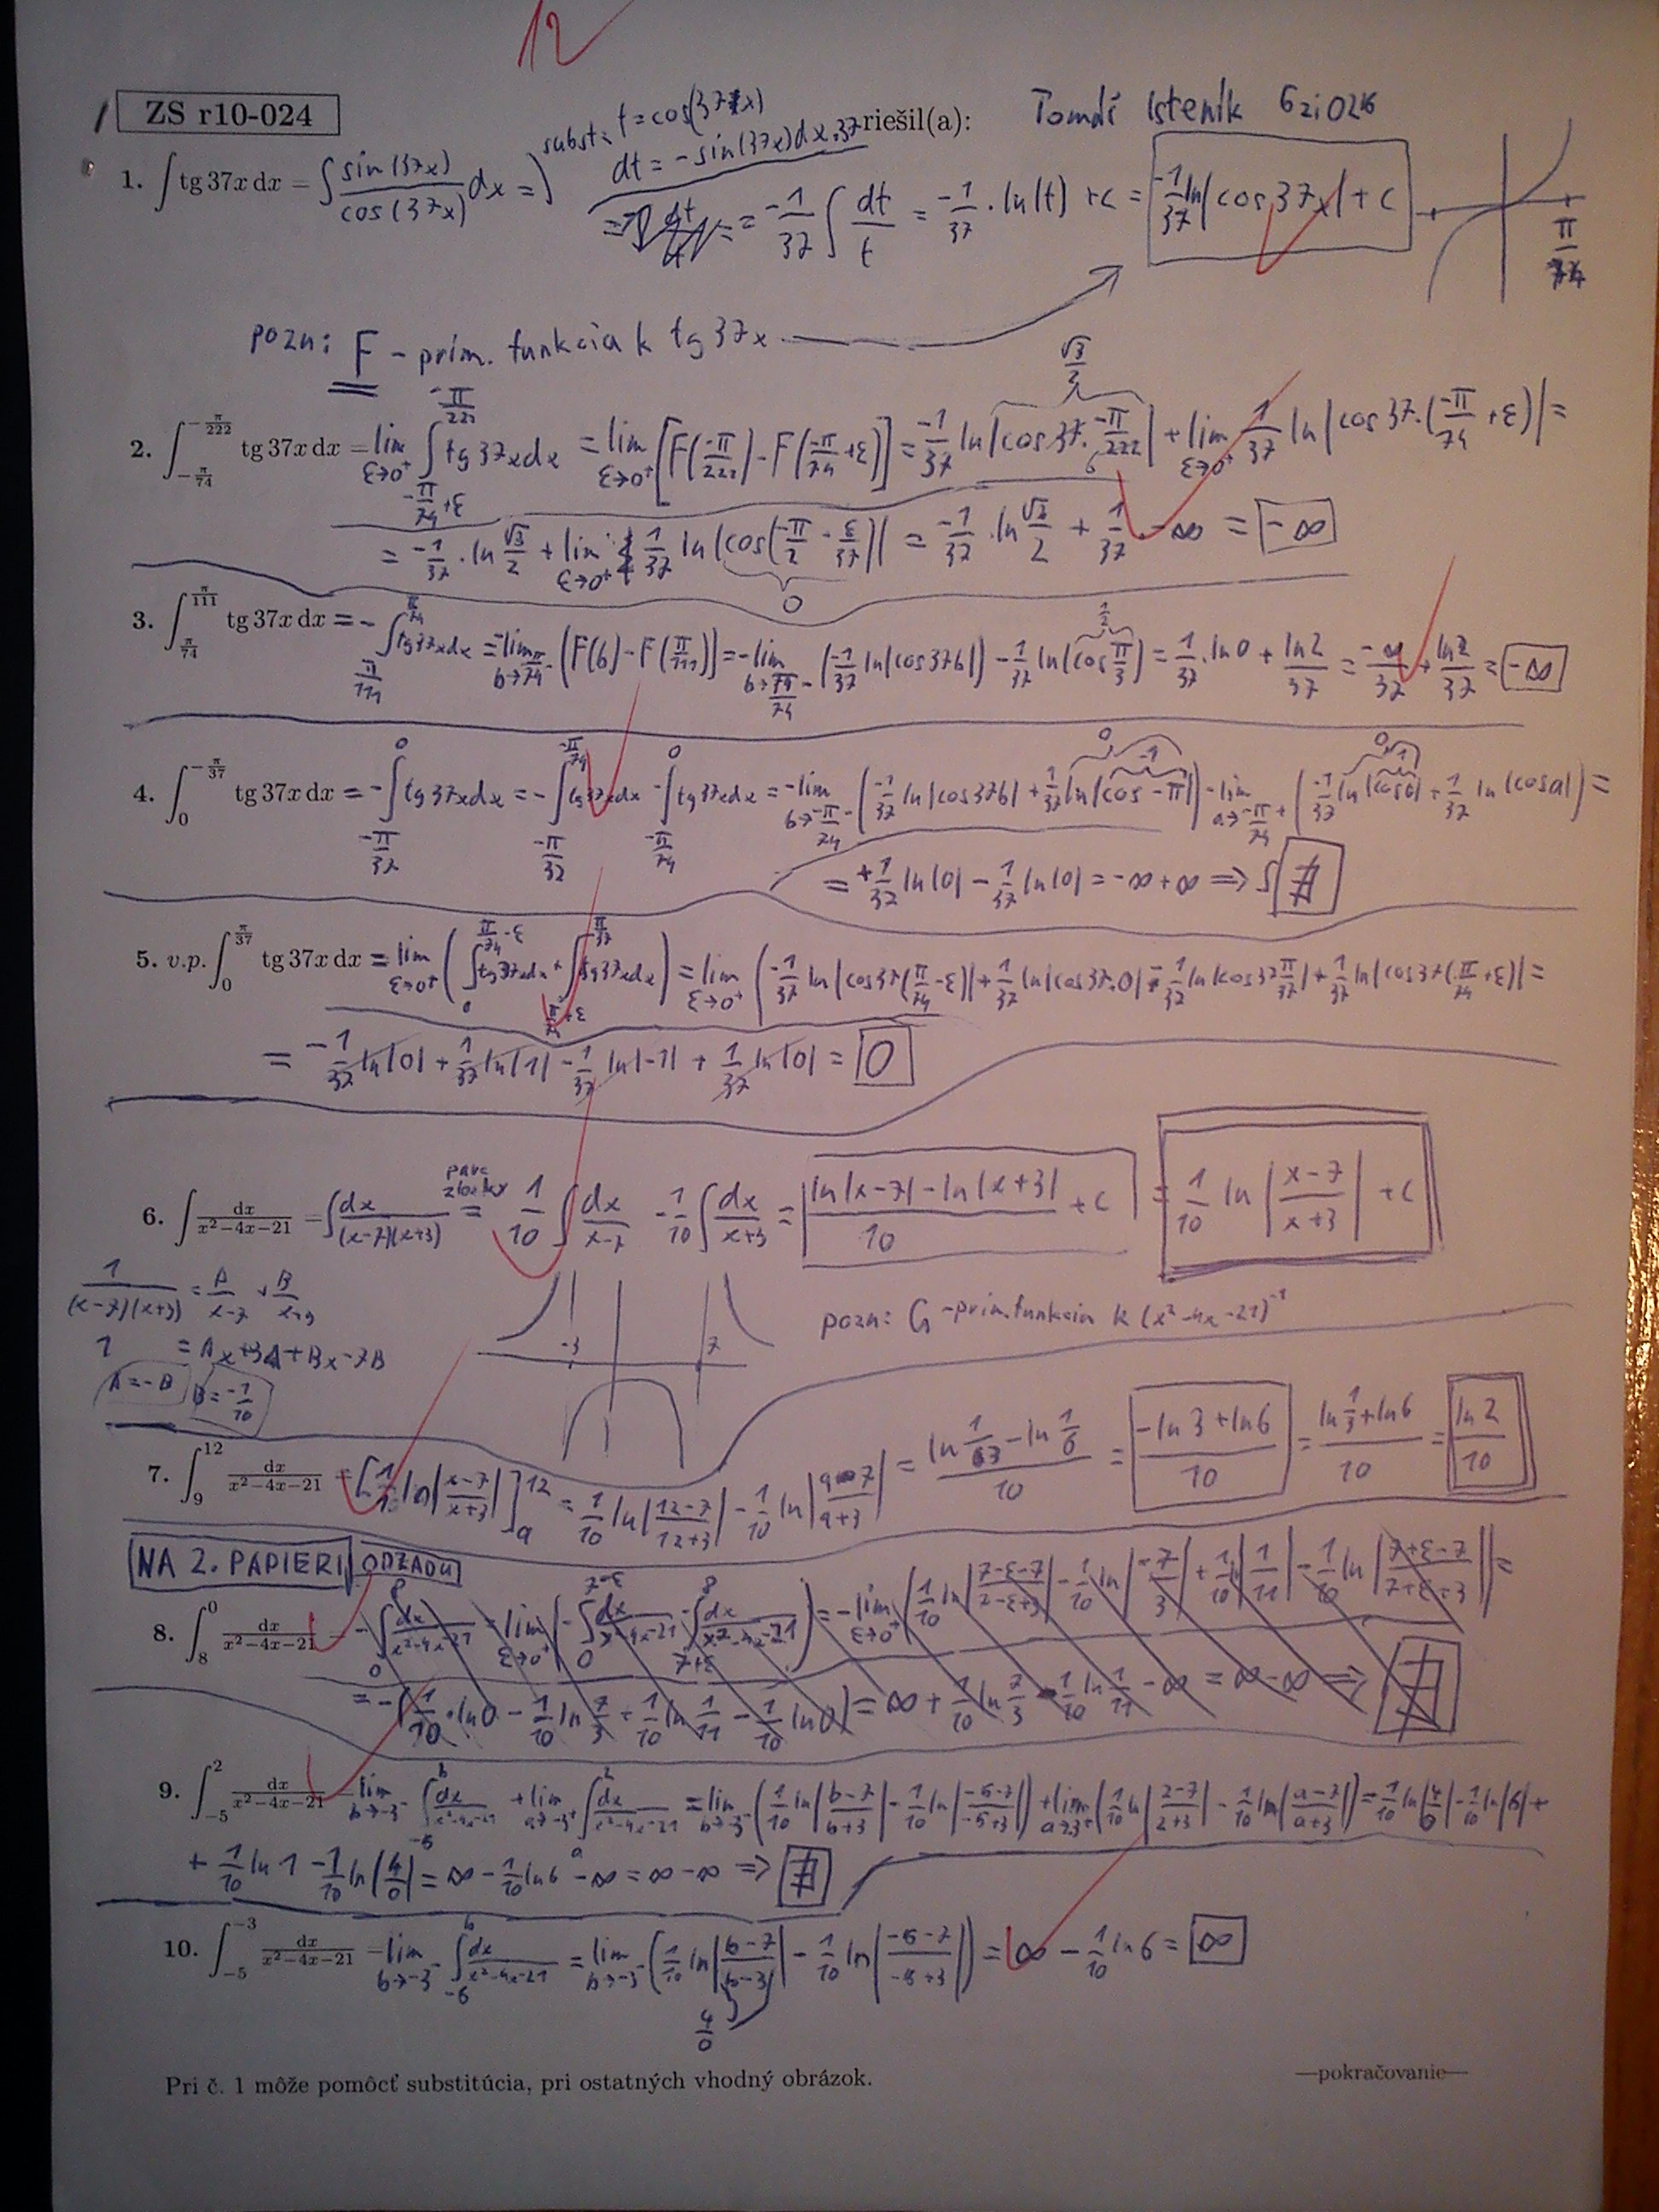 12
ZS r10-024
subst: t = cos(37x)
riešil(a): Tomáš Isteník 6zi026
dt = -sin(37x)dx.37
1. ∫ tg 37x dx = ∫ sin(37x)/cos(37x) dx = = -1/37 ∫ dt/t = -1/37 . ln(t) + c = -1/37 ln|cos37x| + c
pozn: F - prim. funkcia k tg 37x
2. ∫_{-π/74}^{-π/222} tg 37x dx = lim_{ε→0⁺} ∫_{-π/74+ε}^{-π/222} tg37xdx = lim_{ε→0⁺} [F(-π/222) - F(-π/74+ε)] = -1/37 ln|cos37.-π/222| + lim_{ε→0⁺} 1/37 ln|cos37.(-π/74+ε)| =
= -1/37 . ln √3/2 + lim_{ε→0⁺} 1/37 ln|cos(-π/2 + ε/37)| = -1/37 . ln √3/2 + 1/37 . -∞ = -∞
3. ∫_{π/74}^{π/111} tg 37x dx = -∫_{π/111}^{π/74} tg37xdx = -lim_{b→π/74⁻} (F(b) - F(π/111)) = -lim_{b→π/74} (-1/37 ln|cos37b|) - 1/37 ln(cos π/3) = 1/37 . ln0 + ln2/37 = -∞/37 + ln2/37 = -∞
4. ∫_0^{-π/37} tg 37x dx = -∫_{-π/37}^0 tg37xdx = -∫_{-π/37}^{-π/74} tg37xdx - ∫_{-π/74}^0 tg37xdx = -lim_{b→-π/74⁻} (-1/37 ln|cos37b| + 1/37 ln|cos -π|) - lim_{a→-π/74⁺} (-1/37 ln|cos0| + 1/37 ln|cosa|) =
= +1/37 ln|0| - 1/37 ln|0| = -∞+∞ ⇒ ∫ ∄
5. v.p. ∫_0^{π/37} tg 37x dx = lim_{ε→0⁺} (∫_0^{π/74-ε} tg37xdx + ∫_{π/74+ε}^{π/37} tg37xdx) = lim_{ε→0⁺} (-1/37 ln|cos37(π/74-ε)| + 1/37 ln|cos37.0| - 1/37 ln|cos37 π/37| + 1/37 ln|cos37(π/74+ε)| =
= -1/37 ln|0| + 1/37 ln|1| - 1/37 ln|-1| + 1/37 ln|0| = 0
6. ∫ dx/(x²-4x-21) = ∫ dx/((x-7)(x+3)) = parc zlomky 1/10 ∫ dx/(x-7) - 1/10 ∫ dx/(x+3) = (ln|x-7| - ln|x+3|)/10 + c = 1/10 ln |(x-7)/(x+3)| + c
1/((x-7)(x+3)) = A/(x-7) + B/(x+3)
-3 7
pozn: G - prim. funkcia k (x²-4x-21)⁻¹
1 = Ax+3A+Bx-7B
A=-B B=-1/10
7. ∫_9^12 dx/(x²-4x-21) = [1/10 ln|(x-7)/(x+3)|]_9^12 = 1/10 ln|(12-7)/(12+3)| - 1/10 ln|(9-7)/(9+3)| = (ln 1/3 - ln 1/6)/10 = (-ln3+ln6)/10 = (ln 1/3 + ln6)/10 = ln2/10
NA 2. PAPIERI ODZADU
8. ∫_8^0 dx/(x²-4x-21) = -∫_0^8 dx/(x²-4x-21) = lim_{ε→0⁺} (-∫_0^{7-ε} dx/(x²-4x-21) - ∫_{7+ε}^8 dx/(x²-4x-21)) = -lim_{ε→0⁺} (1/10 ln|(7-ε-7)/(7-ε+3)| - 1/10 ln|-7/3| + 1/10 ln|1/11| - 1/10 ln|(7+ε-7)/(7+ε+3)|) =
= -(1/10 . ln0 - 1/10 ln 7/3 + 1/10 ln 1/11 - 1/10 ln0) = ∞ + 1/10 ln 7/3 - 1/10 ln 1/11 - ∞ = ∞-∞ ⇒ ∄
9. ∫_{-5}^2 dx/(x²-4x-21) = lim_{b→-3⁻} ∫_{-5}^b dx/(x²-4x-21) + lim_{a→-3⁺} ∫_a^2 dx/(x²-4x-21) = lim_{b→-3⁻} (1/10 ln|(b-7)/(b+3)| - 1/10 ln|(-5-7)/(-5+3)|) + lim_{a→-3⁺} (1/10 ln|(2-7)/(2+3)| - 1/10 ln|(a-7)/(a+3)|) = 1/10 ln|4/0| - 1/10 ln|6| +
+ 1/10 ln 1 - 1/10 ln|4/0| = ∞ - 1/10 ln6 - ∞ = ∞-∞ ⇒ ∄
10. ∫_{-5}^{-3} dx/(x²-4x-21) = lim_{b→-3⁻} ∫_{-5}^b dx/(x²-4x-21) = lim_{b→-3⁻} (1/10 ln|(b-7)/(b-3)| - 1/10 ln|(-5-7)/(-5+3)|) = ∞ - 1/10 ln6 = ∞
4/0
Pri č. 1 môže pomôcť substitúcia, pri ostatných vhodný obrázok.
—pokračovanie—